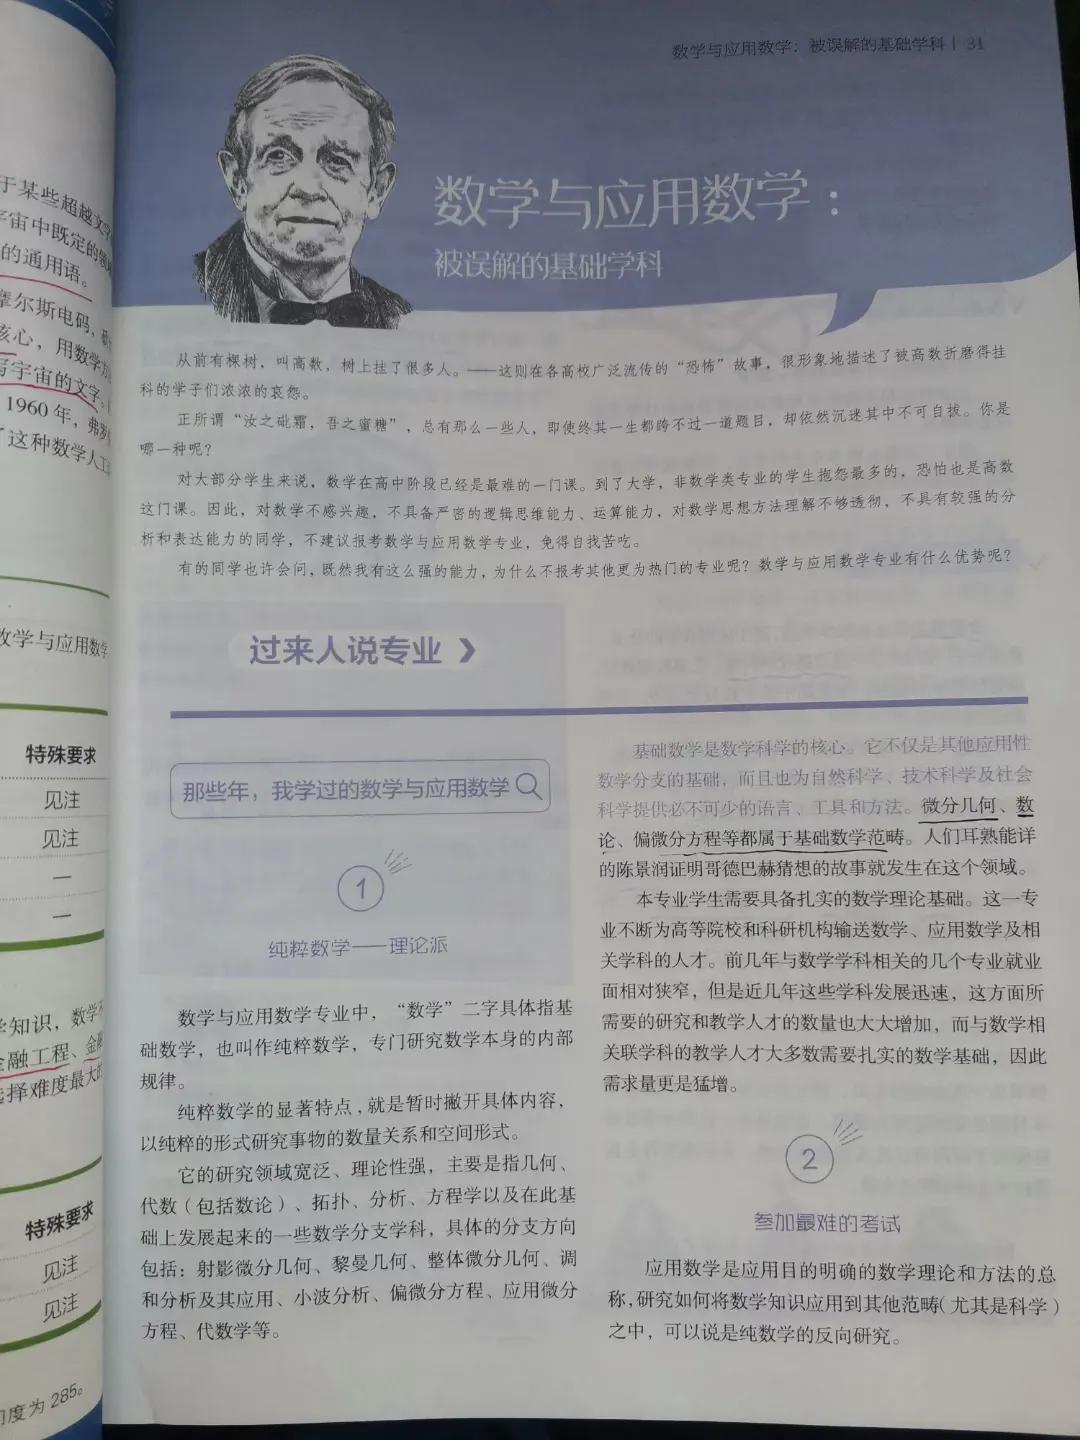 于某些超越文字
宇宙中既定的
的通用语。
摩尔斯电码、
核心，用数学方
写宇宙的文字。
1960年，弗罗
了这种数学人工
数学与应用数学
特殊要求
见注
见注
—
—
学知识，数学
金融工程、金融
选择难度最大的
特殊要求
见注
见注
度为285。
数学与应用数学：被误解的基础学科 | 31
数学与应用数学：
被误解的基础学科
从前有棵树，叫高数，树上挂了很多人。——这则在各高校广泛流传的“恐怖”故事，很形象地描述了被高数折磨得挂
科的学子们浓浓的哀怨。
正所谓“汝之砒霜，吾之蜜糖”，总有那么一些人，即使终其一生都跨不过一道题目，却依然沉迷其中不可自拔。你是
哪一种呢？
对大部分学生来说，数学在高中阶段已经是最难的一门课。到了大学，非数学类专业的学生抱怨最多的，恐怕也是高数
这门课。因此，对数学不感兴趣，不具备严密的逻辑思维能力、运算能力，对数学思想方法理解不够透彻，不具有较强的分
析和表达能力的同学，不建议报考数学与应用数学专业，免得自找苦吃。
有的同学也许会问，既然我有这么强的能力，为什么不报考其他更为热门的专业呢？数学与应用数学专业有什么优势呢？
过来人说专业
那些年，我学过的数学与应用数学
1
纯粹数学——理论派
数学与应用数学专业中，“数学”二字具体指基
础数学，也叫作纯粹数学，专门研究数学本身的内部
规律。
纯粹数学的显著特点，就是暂时撇开具体内容，
以纯粹的形式研究事物的数量关系和空间形式。
它的研究领域宽泛、理论性强，主要是指几何、
代数（包括数论）、拓扑、分析、方程学以及在此基
础上发展起来的一些数学分支学科，具体的分支方向
包括：射影微分几何、黎曼几何、整体微分几何、调
和分析及其应用、小波分析、偏微分方程、应用微分
方程、代数学等。
基础数学是数学科学的核心。它不仅是其他应用性
数学分支的基础，而且也为自然科学、技术科学及社会
科学提供必不可少的语言、工具和方法。微分几何、数
论、偏微分方程等都属于基础数学范畴。人们耳熟能详
的陈景润证明哥德巴赫猜想的故事就发生在这个领域。
本专业学生需要具备扎实的数学理论基础。这一专
业不断为高等院校和科研机构输送数学、应用数学及相
关学科的人才。前几年与数学学科相关的几个专业就业
面相对狭窄，但是近几年这些学科发展迅速，这方面所
需要的研究和教学人才的数量也大大增加，而与数学相
关联学科的教学人才大多数需要扎实的数学基础，因此
需求量更是猛增。
2
参加最难的考试
应用数学是应用目的明确的数学理论和方法的总
称，研究如何将数学知识应用到其他范畴（尤其是科学）
之中，可以说是纯数学的反向研究。